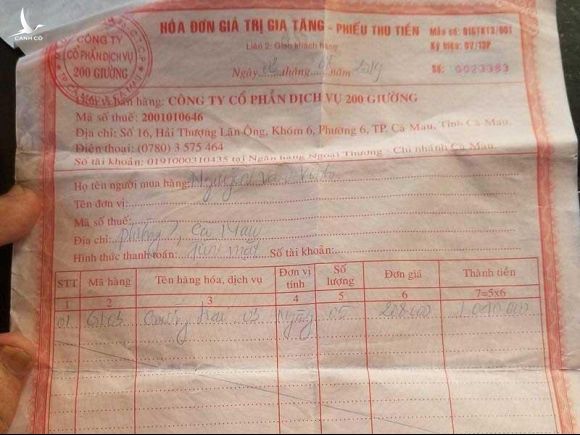 HÓA ĐƠN GIÁ TRỊ GIA TĂNG - PHIẾU THU TIỀN
Mẫu số: 01GTKT3/001
Liên 2: Giao khách hàng
Ký hiệu: DV/13P
Ngày tháng năm 2019
Số: 0023383
CÔNG TY
CỔ PHẦN DỊCH VỤ
200 GIƯỜNG
CÀNH CÒ
Đơn vị bán hàng: CÔNG TY CỔ PHẦN DỊCH VỤ 200 GIƯỜNG
Mã số thuế: 2001010646
Địa chỉ: Số 16, Hải Thượng Lãn Ông, Khóm 6, Phường 6, TP. Cà Mau, Tỉnh Cà Mau.
Điện thoại: (0780) 3 575 464
Số tài khoản: 0191000310435 tại Ngân hàng Ngoại Thương - Chi nhánh Cà Mau.
Họ tên người mua hàng: Nguyễn Văn
Tên đơn vị:
Mã số thuế:
Địa chỉ: phường 7, Cà Mau
Hình thức thanh toán: Số tài khoản:
STT Mã hàng Tên hàng hóa, dịch vụ Đơn vị tính Số lượng Đơn giá Thành tiền
1 2 3 4 5 6 7=5x6
01 Giường Ngày 05 208.000 1.040.000